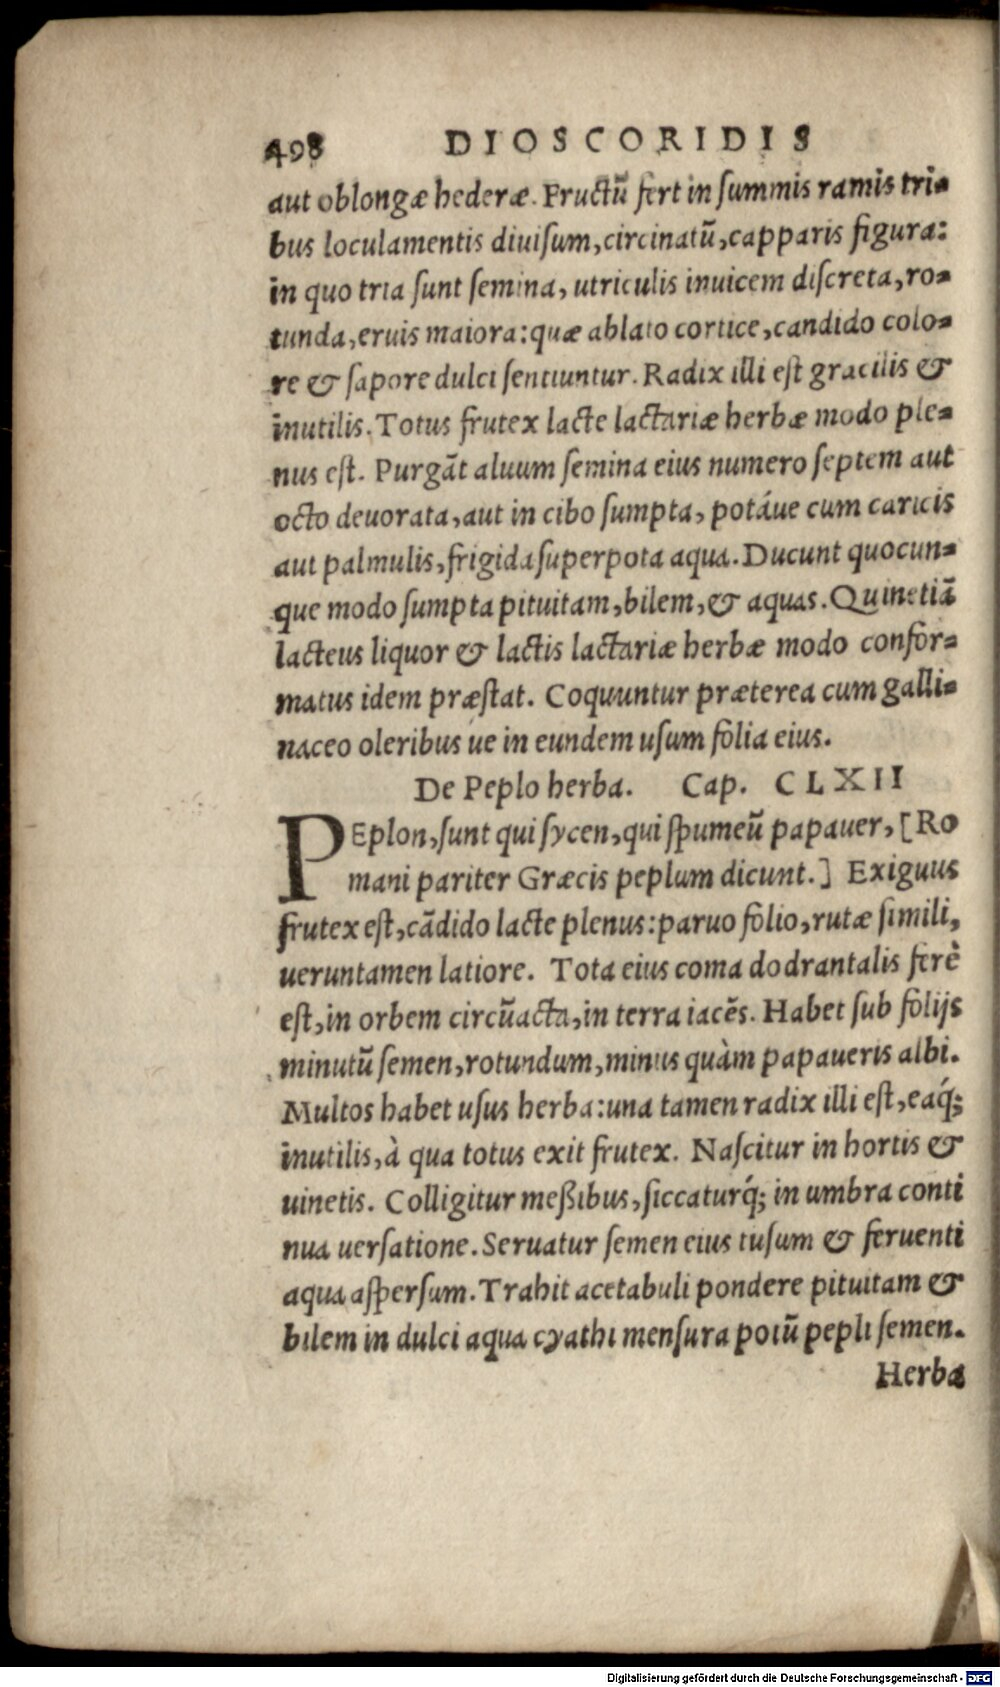 498 DIOSCORIDIS
aut oblongæ hederæ. Fructũ fert in ſummis ramis tri-
bus loculamentis diuiſum, circinatũ, capparis figura:
in quo tria ſunt ſemina, utriculis inuicem diſcreta, ro-
tunda, eruis maiora: quæ ablato cortice, candido colo-
re & ſapore dulci ſentiuntur. Radix illi eſt gracilis &
inutilis. Totus frutex lacte lactariæ herbæ modo ple-
nus eſt. Purgãt aluum ſemina eius numero ſeptem aut
octo deuorata, aut in cibo ſumpta, potáue cum caricis
aut palmulis, frigida ſuperpota aqua. Ducunt quocun-
que modo ſumpta pituitam, bilem, & aquas. Quinetiã
lacteus liquor & lactis lactariæ herbæ modo confor-
matus idem præſtat. Coquuntur præterea cum galli-
naceo oleribus ue in eundem uſum folia eius.
De Peplo herba. Cap. CLXII
PEplon, ſunt qui ſycen, qui ſpumeũ papauer, [Ro
mani pariter Græcis peplum dicunt.] Exiguus
frutex eſt, cãdido lacte plenus: paruo folio, rutæ ſimili,
ueruntamen latiore. Tota eius coma dodrantalis ferè
eſt, in orbem circũacta, in terra iacẽs. Habet ſub folijs
minutũ ſemen, rotundum, minus quàm papaueris albi.
Multos habet uſus herba: una tamen radix illi eſt, eaq́;
inutilis, à qua totus exit frutex. Naſcitur in hortis &
uinetis. Colligitur meßibus, ſiccaturq́; in umbra conti
nua uerſatione. Seruatur ſemen eius tuſum & feruenti
aqua aſperſum. Trahit acetabuli pondere pituitam &
bilem in dulci aqua cyathi menſura potũ pepli ſemen.
Herba
Digitalisierung gefördert durch die Deutsche Forschungsgemeinschaft - DFG